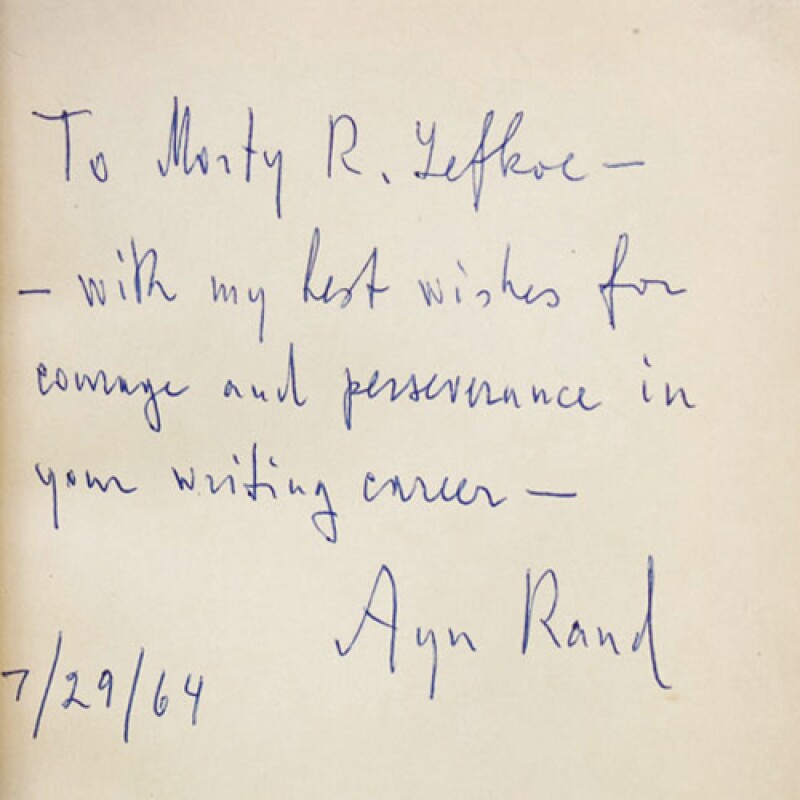 To Morty R. Lefkoe —
— with my best wishes for
courage and perseverance in
your writing career —
Ayn Rand
7/29/64